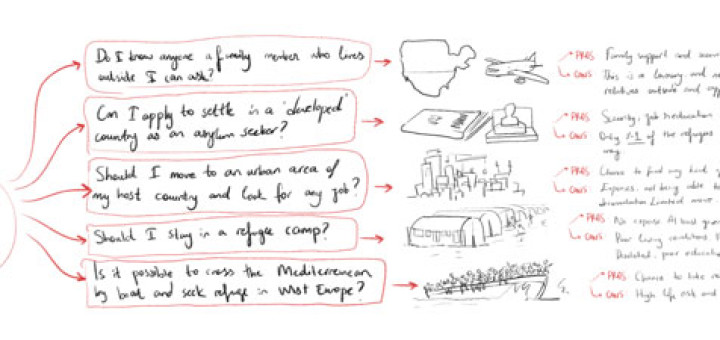 Do I know anyone a family member who lives
outside I can ask?
PROS Family support and
CONS This is a luxury and
relatives outside and
Can I apply to settle in a 'developed'
country as an asylum seeker?
PROS Security, job
CONS Only %1 of the refugees
way
Should I move to an urban area of
my host country and look for any job?
PROS Chance to find my
CONS Expenses, not being able
Limited
Should I stay in a refugee camp?
PROS No expense At least
CONS Poor living conditions
Isolated, poor
Is it possible to cross the Mediterranean
by boat and seek refuge in West Europe?
PROS Chance to take
CONS High life risk and